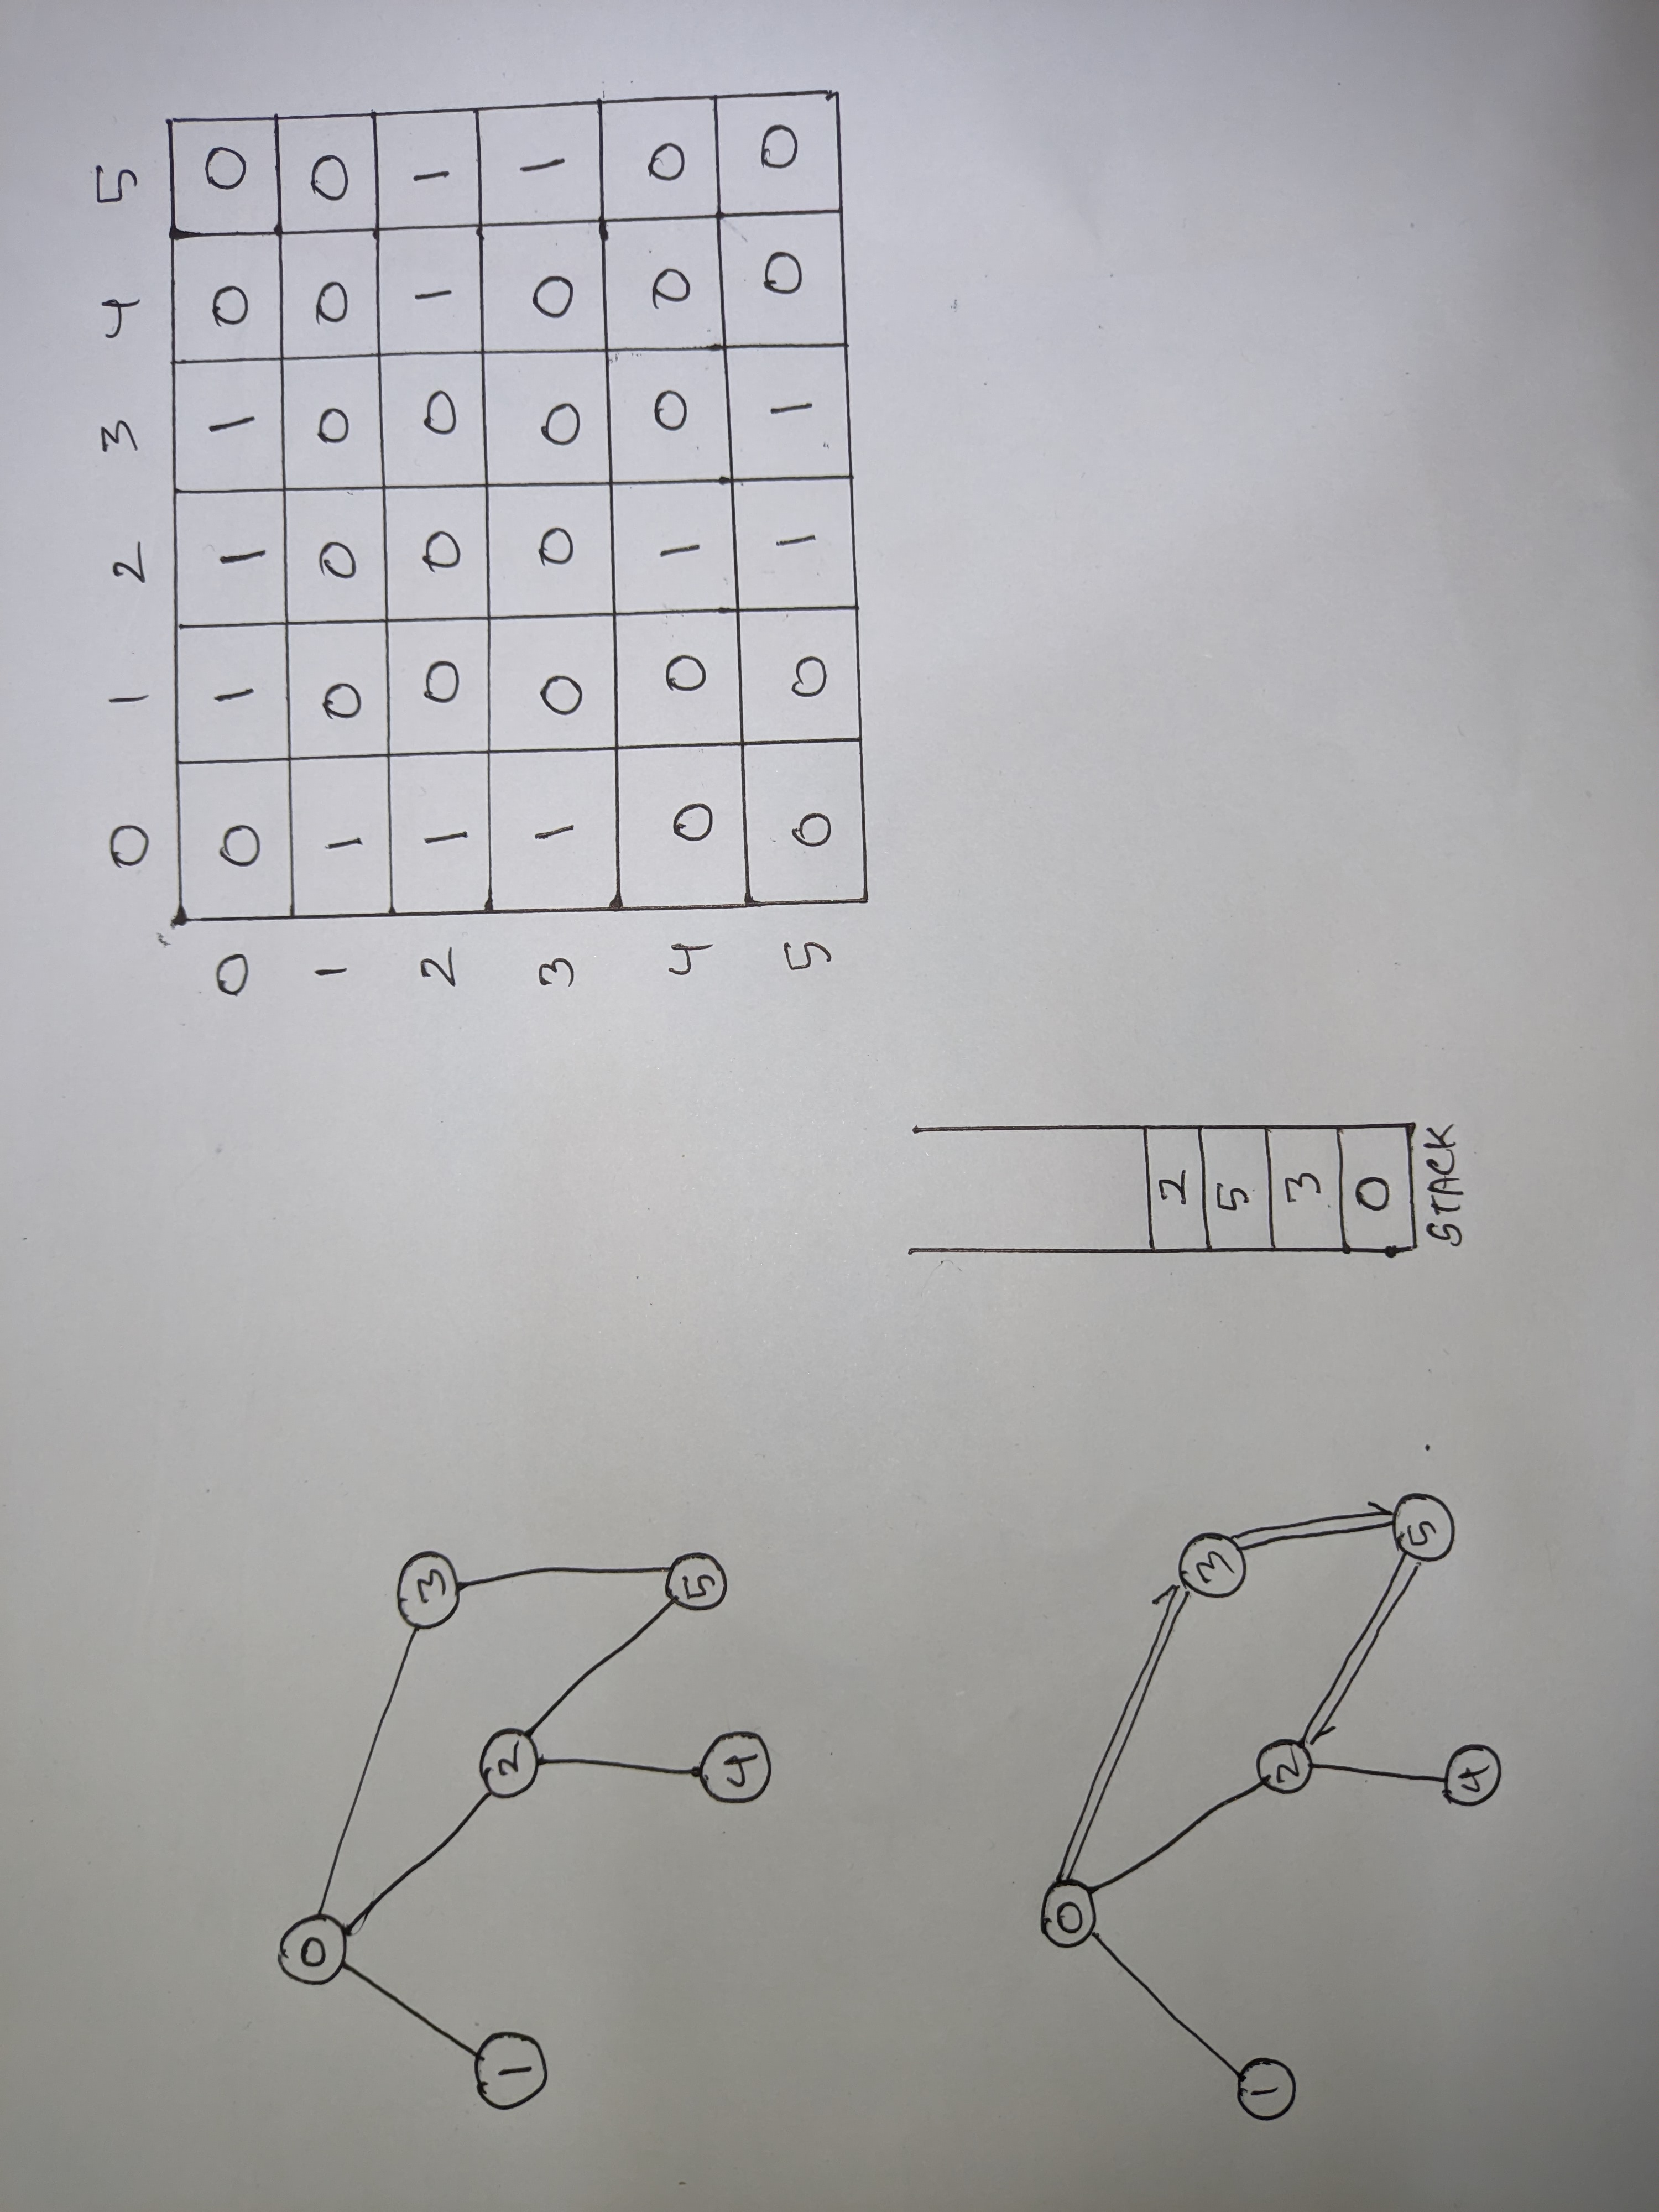 0
3
1
2
5
4
0 1 2 3 4 5
0 0 1 1 1 0 0
1 1 0 0 0 0 0
2 1 0 0 0 1 1
3 1 0 0 0 0 1
4 0 0 1 0 0 0
5 0 0 1 1 0 0
0
3
1
2
5
4
2
5
3
0
STACK